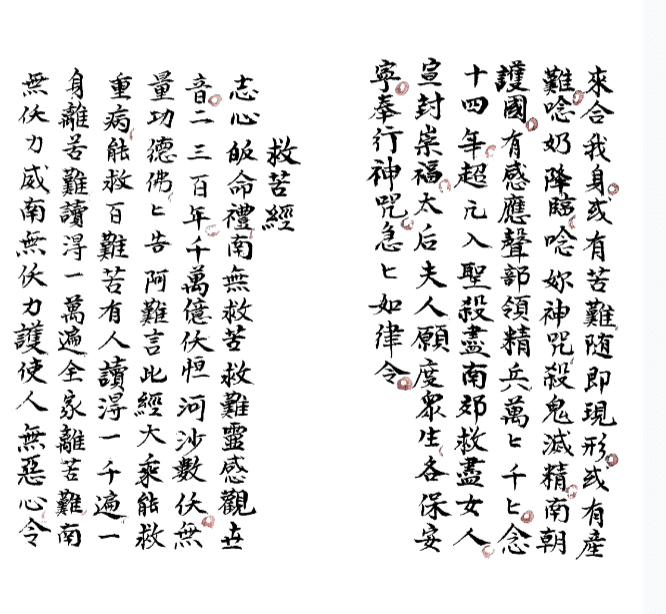 來合我身或有苦難随即現形或有產
難唸奶降臨唸妳神咒殺鬼滅精南朝
護國有感應聲部領精兵萬匕千匕念
十四年超元入聖殺盡南郊救盡女人
宣封崇福太后夫人願度眾生各保安
寧奉行神咒急匕如律令
救苦經
志心皈命禮南無救苦救難靈感觀世
音二三百年千萬億仸恒河沙數仸無
量功德佛匕告阿難言此經大乘能救
重病能救百難苦有人讀淂一千遍一
身離苦難讀淂一萬遍全家離苦難南
無仸力威南無仸力護使人無惡心令